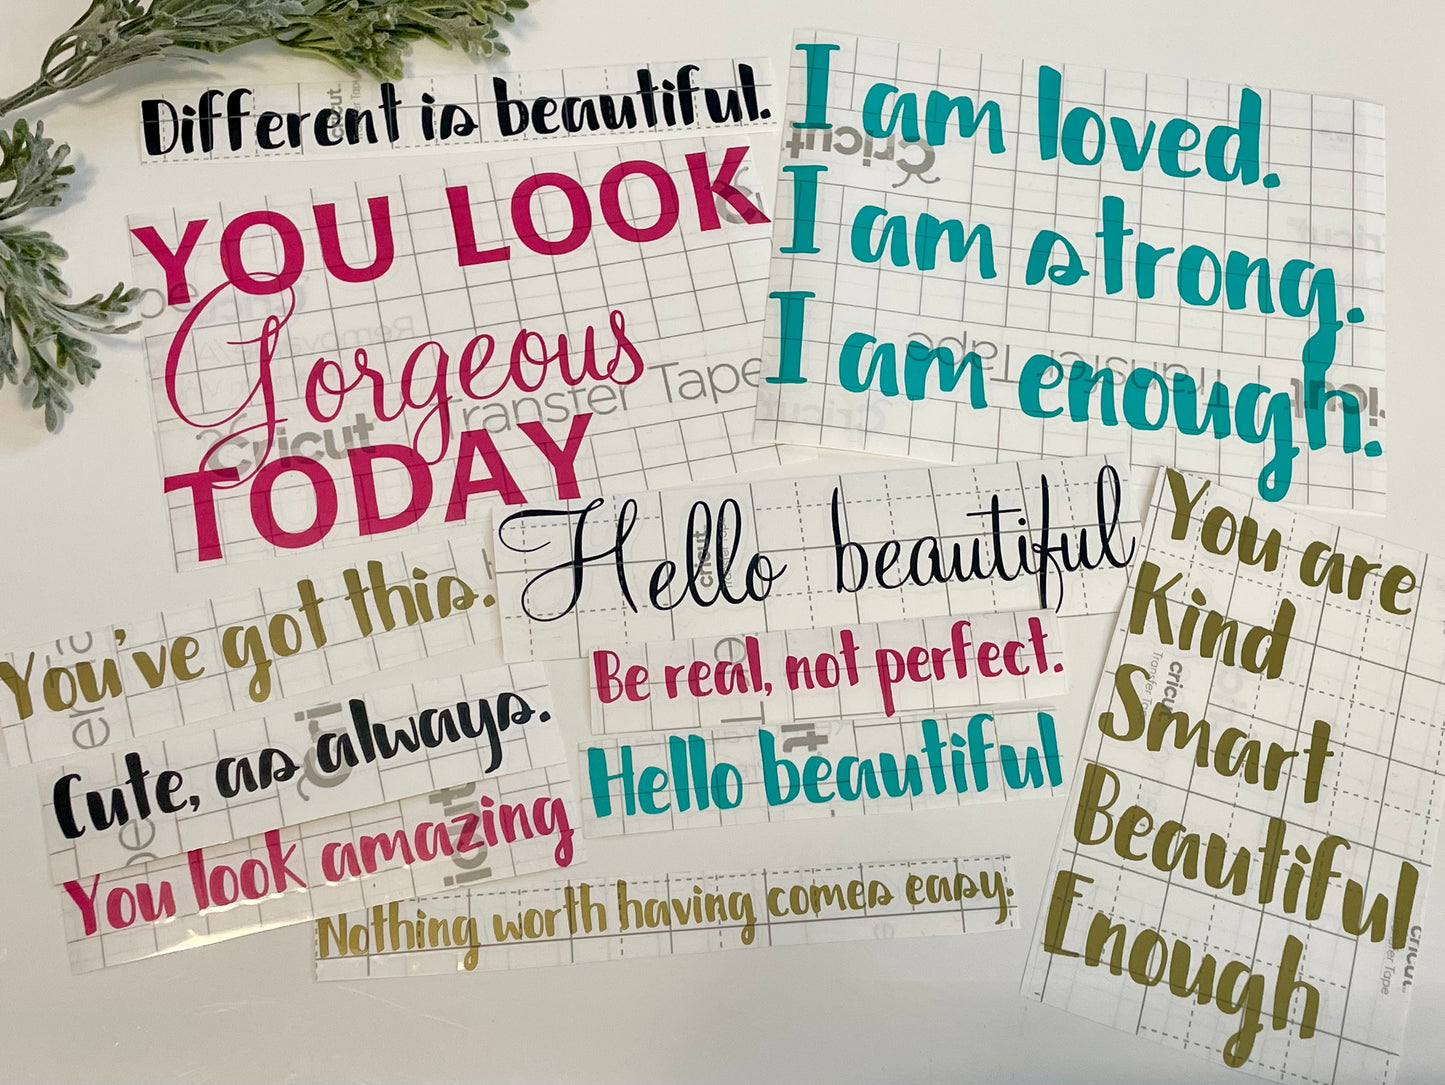 Different is beautiful.
YOU LOOK
Gorgeous
TODAY
I am loved.
I am strong.
I am enough.
Hello beautiful
You've got this.
Be real, not perfect.
Cute, as always.
Hello beautiful
You look amazing
Nothing worth having comes easy.
You are
Kind
Smart
Beautiful
Enough
cricut
Cricut
Cricut Transfer Tape
Transfer Tape
cricut
Transfer Tape
cricut
Transfer Tape